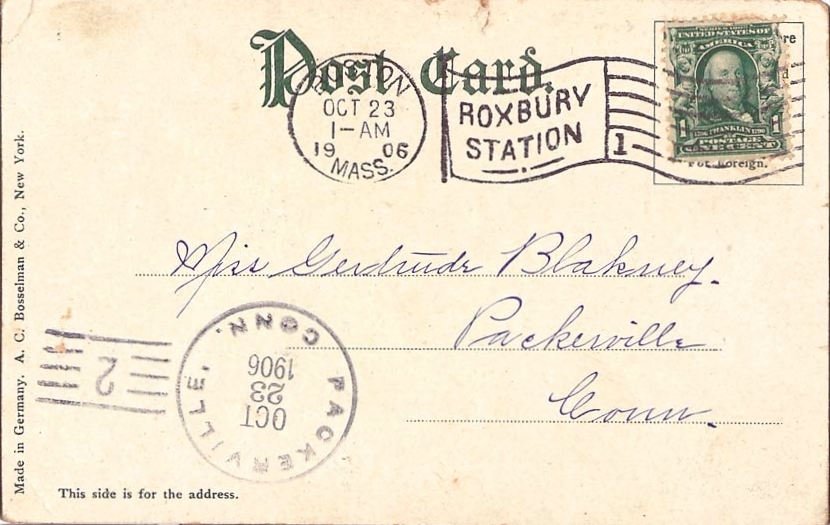 Post Card.
BOSTON
OCT 23
1-AM
19 06
MASS.
ROXBURY
STATION
1
SERIES 1902
UNITED STATES OF
AMERICA
1706 FRANKLIN 1790
1 1
POSTAGE
ONE CENT
For Foreign.
Miss Gertrude Blakney.
Packerville
Conn.
PACKERVILLE, CONN.
OCT
23
1906
2
Made in Germany. A. C. Bosselman & Co., New York.
This side is for the address.